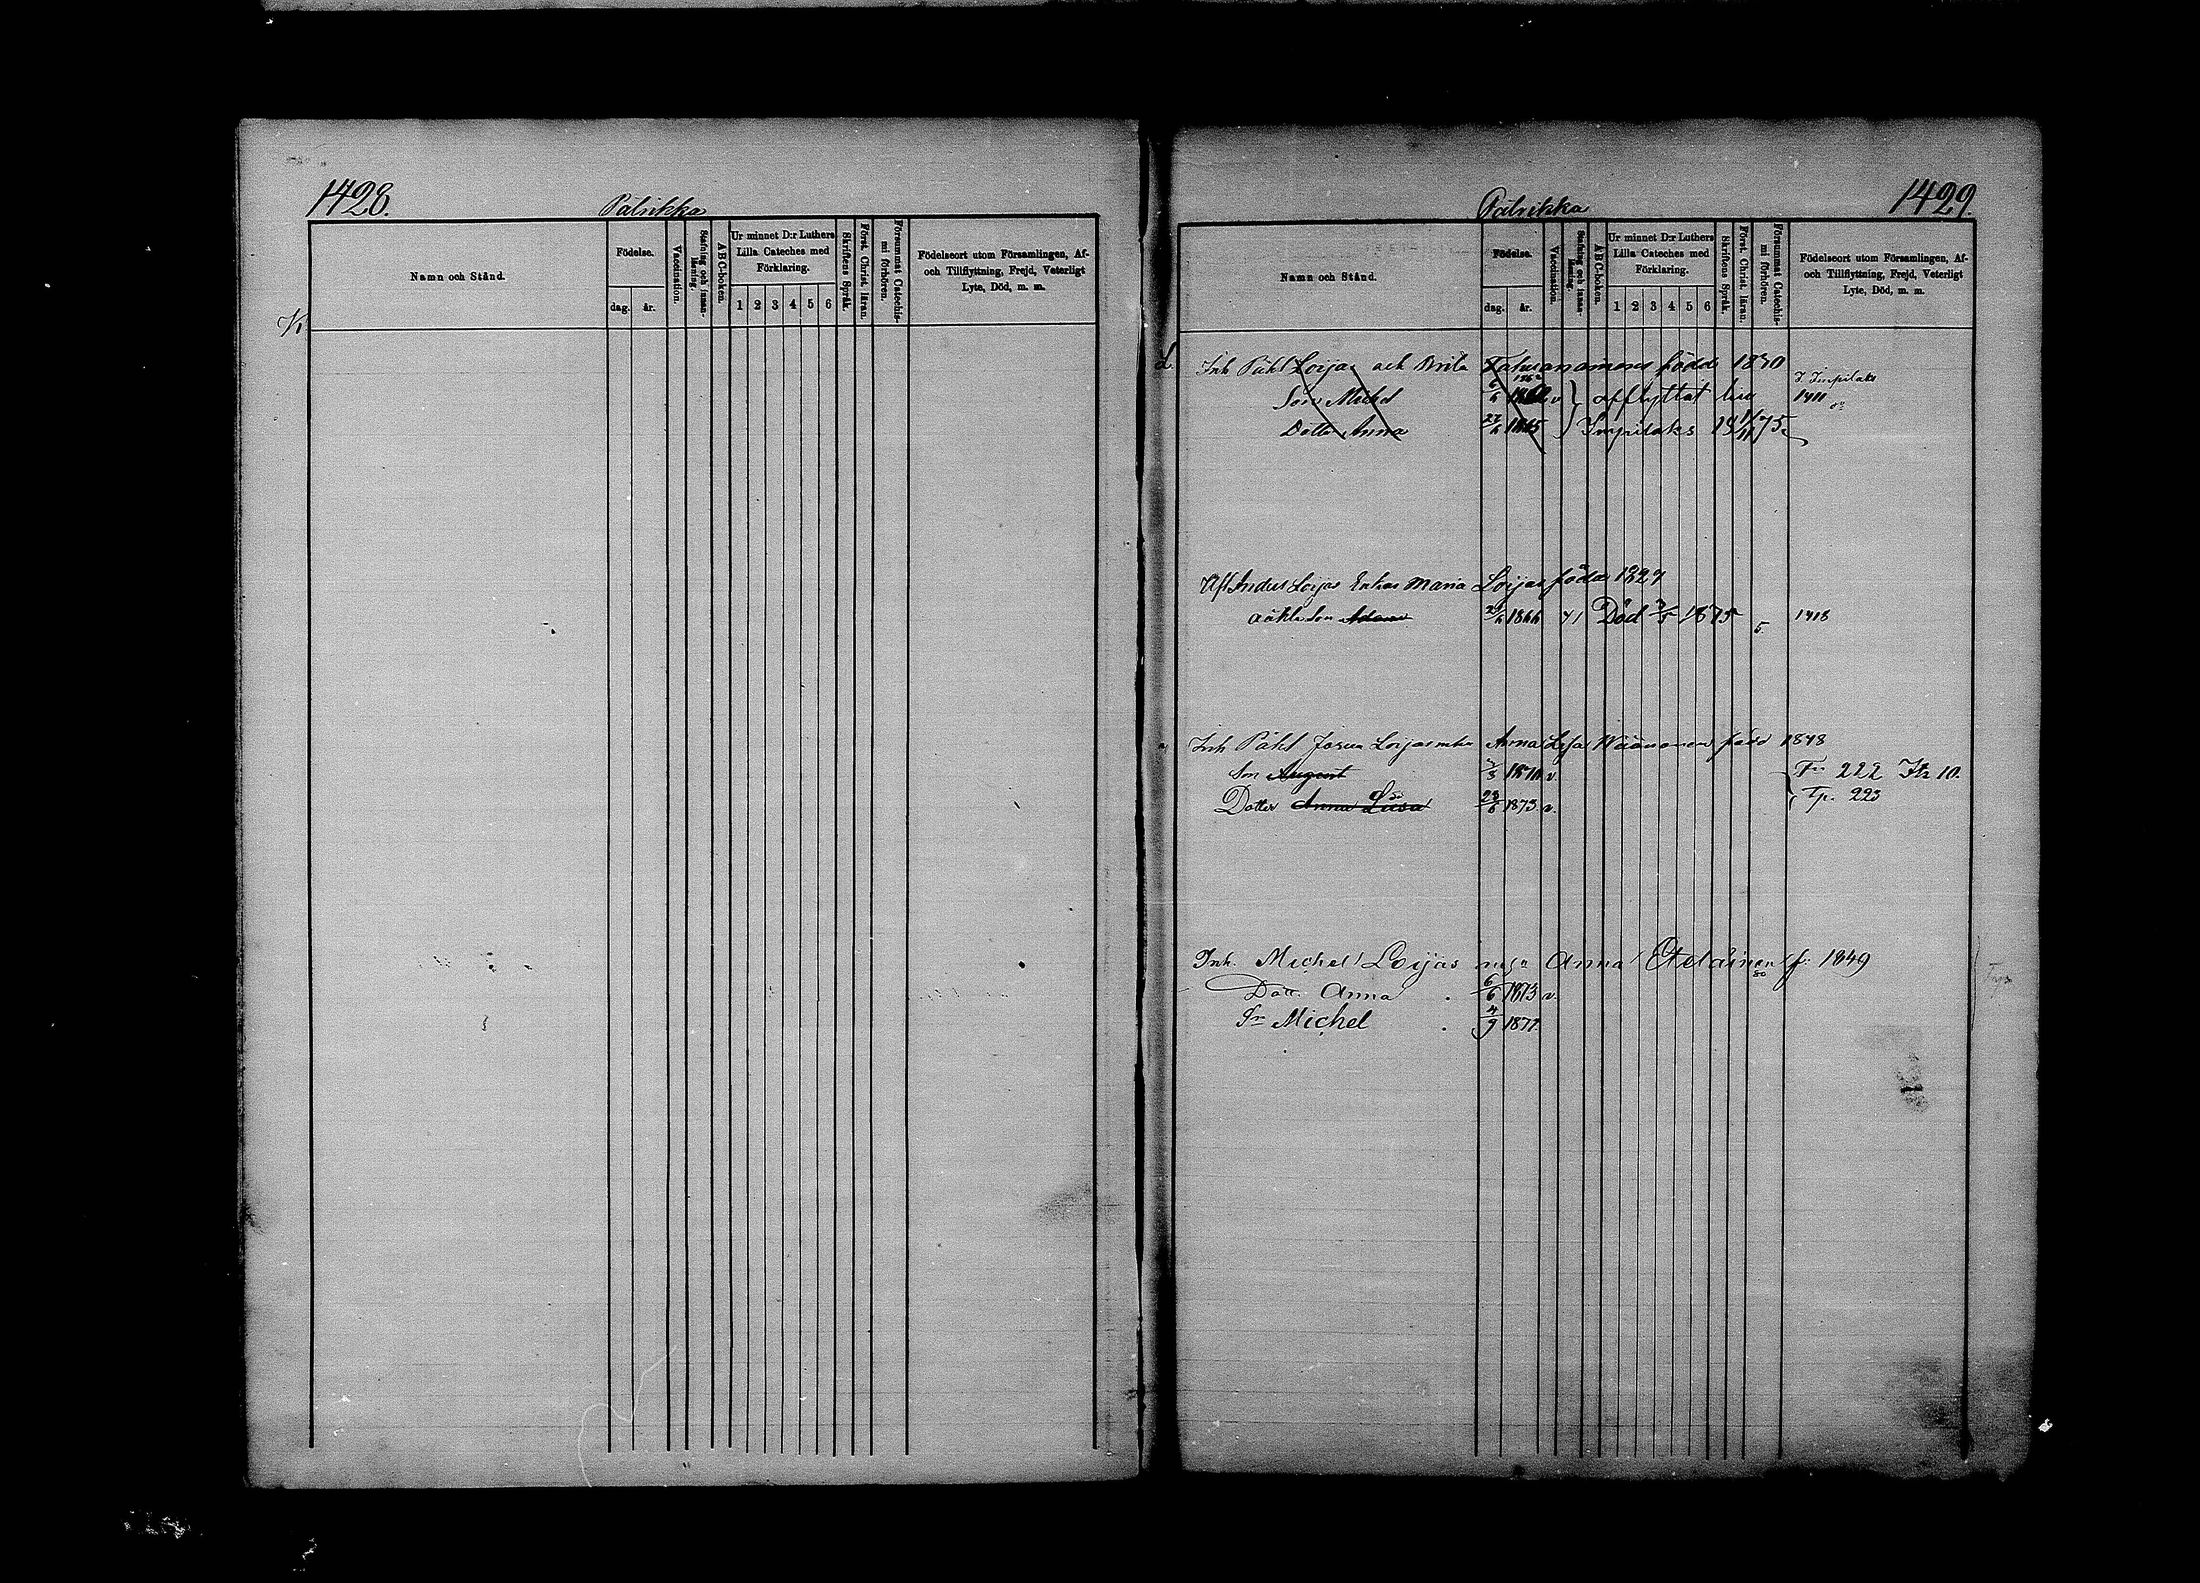 1428.
Pälsikka
Namn och Stånd.
Födelse.
dag.
år.
Vaccination.
Stafning och innan-läsning.
ABC-boken.
Ur minnet D:r Luthers
Lilla Cateches med
Förklaring.
1 2 3 4 5 6
Skriftens Språk.
Först. Christ. läran.
Försummat Catechis-
mi förhören.
Födelseort utom Församlingen, Af-
och Tillflyttning, Frejd, Veterligt
Lyte, Död, m. m.
K
Pälsikka
1429.
Namn och Stånd.
Födelse.
dag.
år.
Vaccination.
Stafning och innan-läsning.
ABC-boken.
Ur minnet D:r Luthers
Lilla Cateches med
Förklaring.
1 2 3 4 5 6
Skriftens Språk.
Först. Christ. läran.
Försummat Catechis-
mi förhören.
Födelseort utom Församlingen, Af-
och Tillflyttning, Frejd, Veterligt
Lyte, Död, m. m.
L.
Inh Påhl Loijas och Brita född 1830
Son Michel 1862 v afflyttat till 1411
Dotter Anna 27/ 1865 Impilaks 18 11/11 75.
Afl Anders Loijas Enkas Maria Loijas född 1827
oäkta son Adam 1866 Död 1875 5. 1418
Inh Påhl Josua Loijas m Anna Lisa Wäänänen född 1848
Son August 1870 v. Fr 222 10.
Dotter Anna Lisa 28/6 1873 v. Fp. 223
Inh. Michel Loijas Anna f. 1849
Dott. Anna 6/6 1873 v.
Sn Michel 4/9 1877